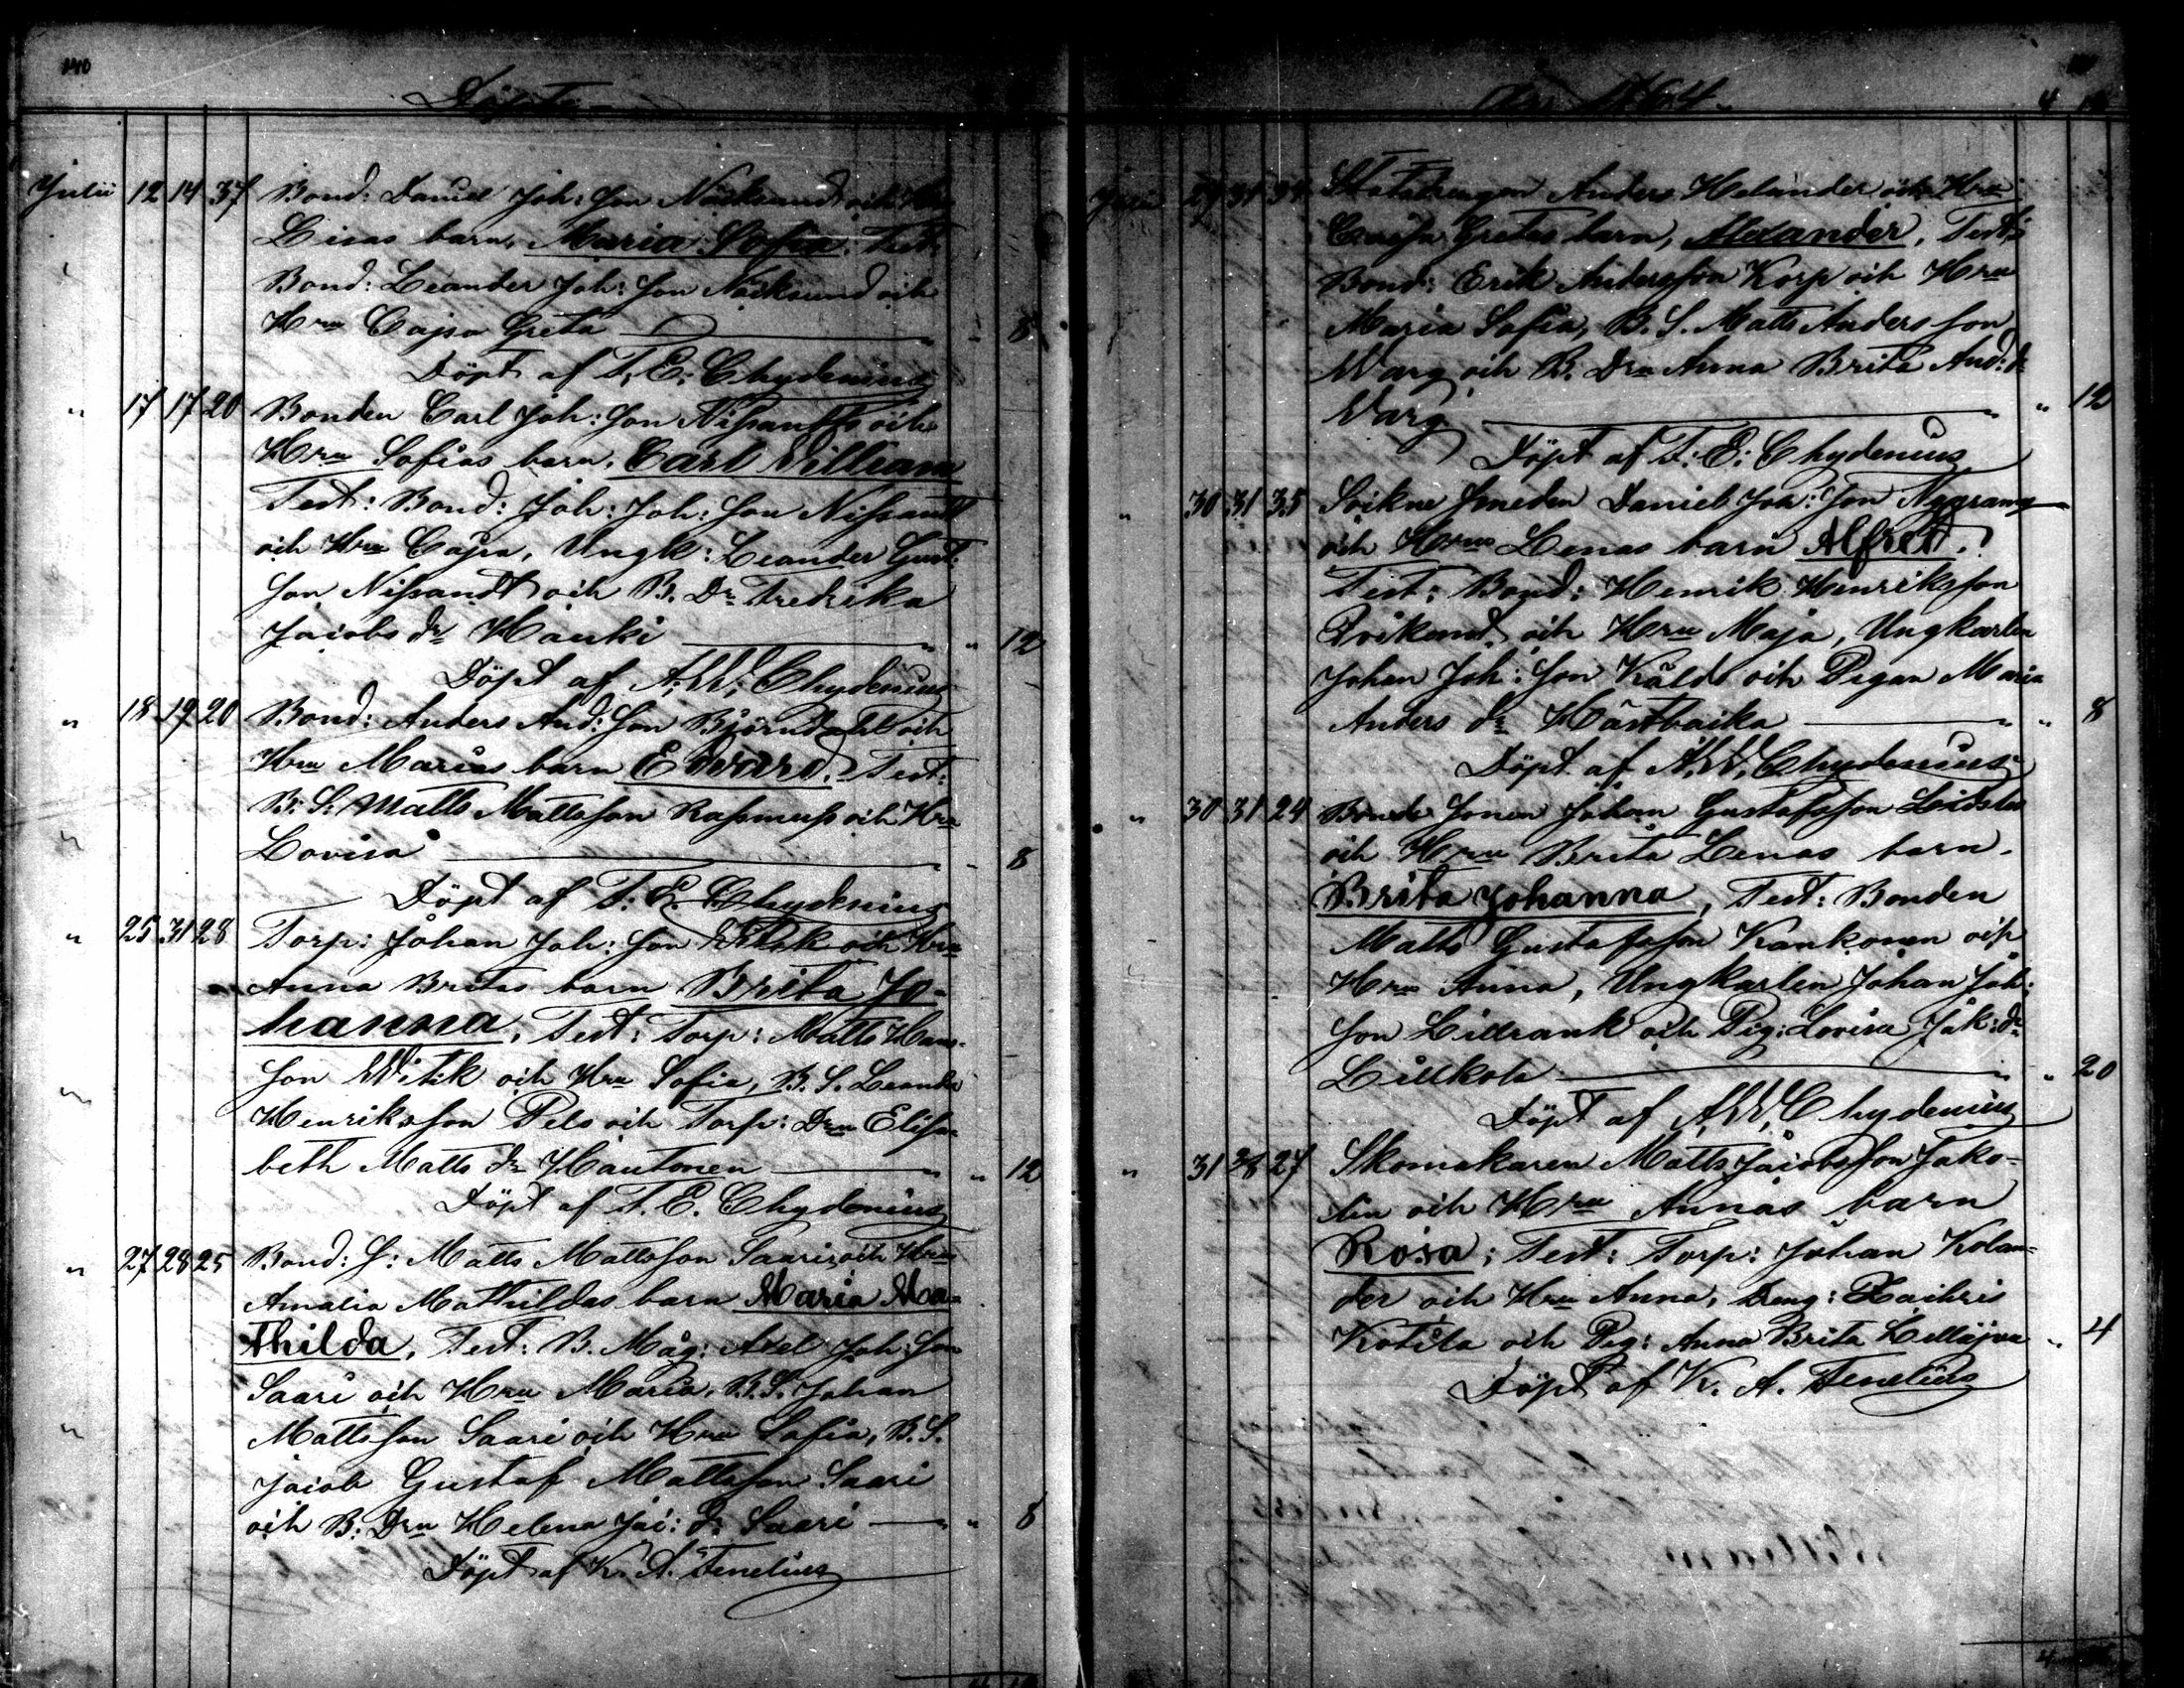 140
Döpte
Julii 12 14 37 Bond: Daniel Joh: Son Näcksund och Hru
Lisas barn, Maria Sofia. Test:
Bond: Leander Joh: Son Näcksund och
Hru Cajsa Greta — " 8
Döpt af F. E. Chydenius
" 17 17 20 Bonden Carl Joh: Son Nissandts och
Hru Sofias barn, Carl William
Test: Bond: Joh: Joh: Son Nissandt
och Hru Cajsa, Ungk: Leander Gust:
Son Nissandt och B. Dr Fredrika
Jacobs dr Hauki — " " 12
Döpt af A. W. Chydenius
" 18 19 20 Bond: Anders And: Son Björndahl och
Hru Marias barn Edvard. Test:
B. S. Matts Mattsson Rasmuss och Hru
Lovisa — " 8
Döpt af F. E. Chydenius
" 25 31 28 Torp: Johan Joh: Son och Hru
Anna Britas barn Brita Jo-
hanna, Test: Torp: Matts Hans-
Son Witik och Hru Sofia, B. S. Leander
Henriksson Pels och Torp: Dru Elisa-
beth Matts dr Hautonen — " " 12
Döpt af F. E. Chydenius
" 27 28 25 Bond: S: Matts Mattsson Saaris och Hru
Amalia Mathildas barn Maria Ma-
thilda, Test: B. Måg: Axel Joh: Son
Saari och Hru Maria, B. S. Johan
Mattsson Saari och Hru Sofia, B. S.
Jacob Gustaf Mattsson Saari
och B. Dru Helena Jac: dr Saari — " 8
Döpt af K. A. Tenelius
År 1864
4 12
Julii 29 31 34 Anders Helander och Hru
Cajsa Gretas barn, Alexander, Test:
Bond: Erik Andersson Korp och Hru
Maria Sofia, B. S. Matts Andersson
Warg och B. Dru Anna Brita And: dr
Warg — " " 12
Döpt af F. E. Chydenius
" 30 31 35 Sockne Smeden Daniel Joh: Son Nygrang
och Hrus Lenas barn Alfred.
Test: Bond: Henrik Henriksson
och Hru Maja, Ungkarlen
Johan Joh: Son Kåld och Pigan Maria
Anders dr Härtbacka — " " 8
Döpt af A. W. Chydenius
" 30 31 24 Bonde Sonen Johan Gustafsson
och Hru Brita Lenas barn.
Brita Johanna, Test: Bonden
Matts Gustafsson Kankonen och
Hru Anna, Ungkarlen Johan Joh:
Son Lillrank och Pig: Lovisa Jak: dr
Lillkola — " " 20
Döpt af A. W. Chydenius
" 31 28 27 Skomakaren Matts Jacobsson Jako-
lin och Hru Annas barn
Rosa; Test: Torp: Johan Kolan-
der och Hru Anna, Deng: Zachris
Kotila och Pig: Anna Brita Lilläjva " 4
Döpt af K. A. Tenelius